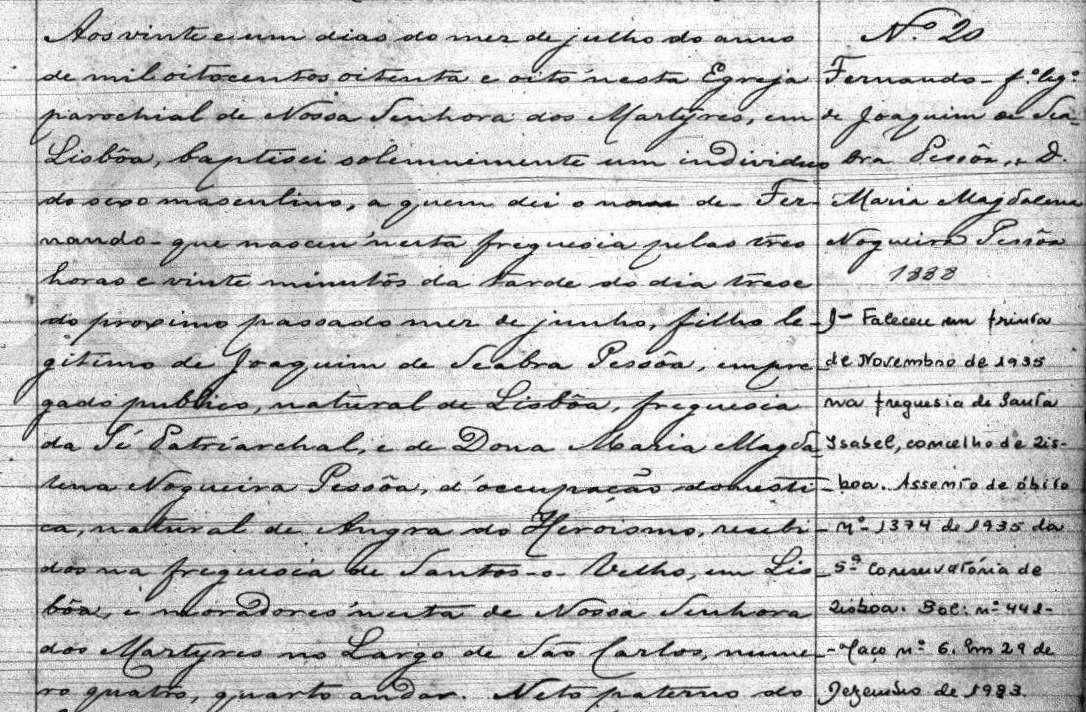 Aos vinte e um dias do mez de julho do anno
de mil oitocentos oitenta e oito n'esta Egreja
parochial de Nossa Senhora dos Martyres, em
Lisbôa, baptisei solemnemente um individuo
do sexo masculino, a quem dei o nome de Fer-
nando - que nasceu n'esta freguesia pelas tres
horas e vinte minutos da tarde do dia trese
do proximo passado mez de junho, filho le-
gitimo de Joaquim de Seabra Pessôa, empre-
gado publico, natural de Lisbôa, freguesia
da Sé Patriarchal, e de Dona Maria Magda-
lena Nogueira Pessôa, d'occupação domesti-
ca, natural de Angra do Heroismo, recebi-
dos na freguesia de Santos-o-Velho, em Lis-
bôa, e moradores n'esta de Nossa Senhora
dos Martyres no Largo de São Carlos, nume-
ro quatro, quarto andar. Neto paterno do
Nº 20
Fernando - fº legº
de Joaquim de Sea-
bra Pessôa, e D.
Maria Magdalena
Nogueira Pessôa
1888
1- Faleceu em trinta
de Novembro de 1935
na freguesia de Santa
Isabel, concelho de Lis-
boa. Assento de óbito
nº 1374 de 1935 da
5ª Conservatória de
Lisboa. Bol: nº 441-
- Maço nº 6. Em 29 de
Dezembro de 1983.